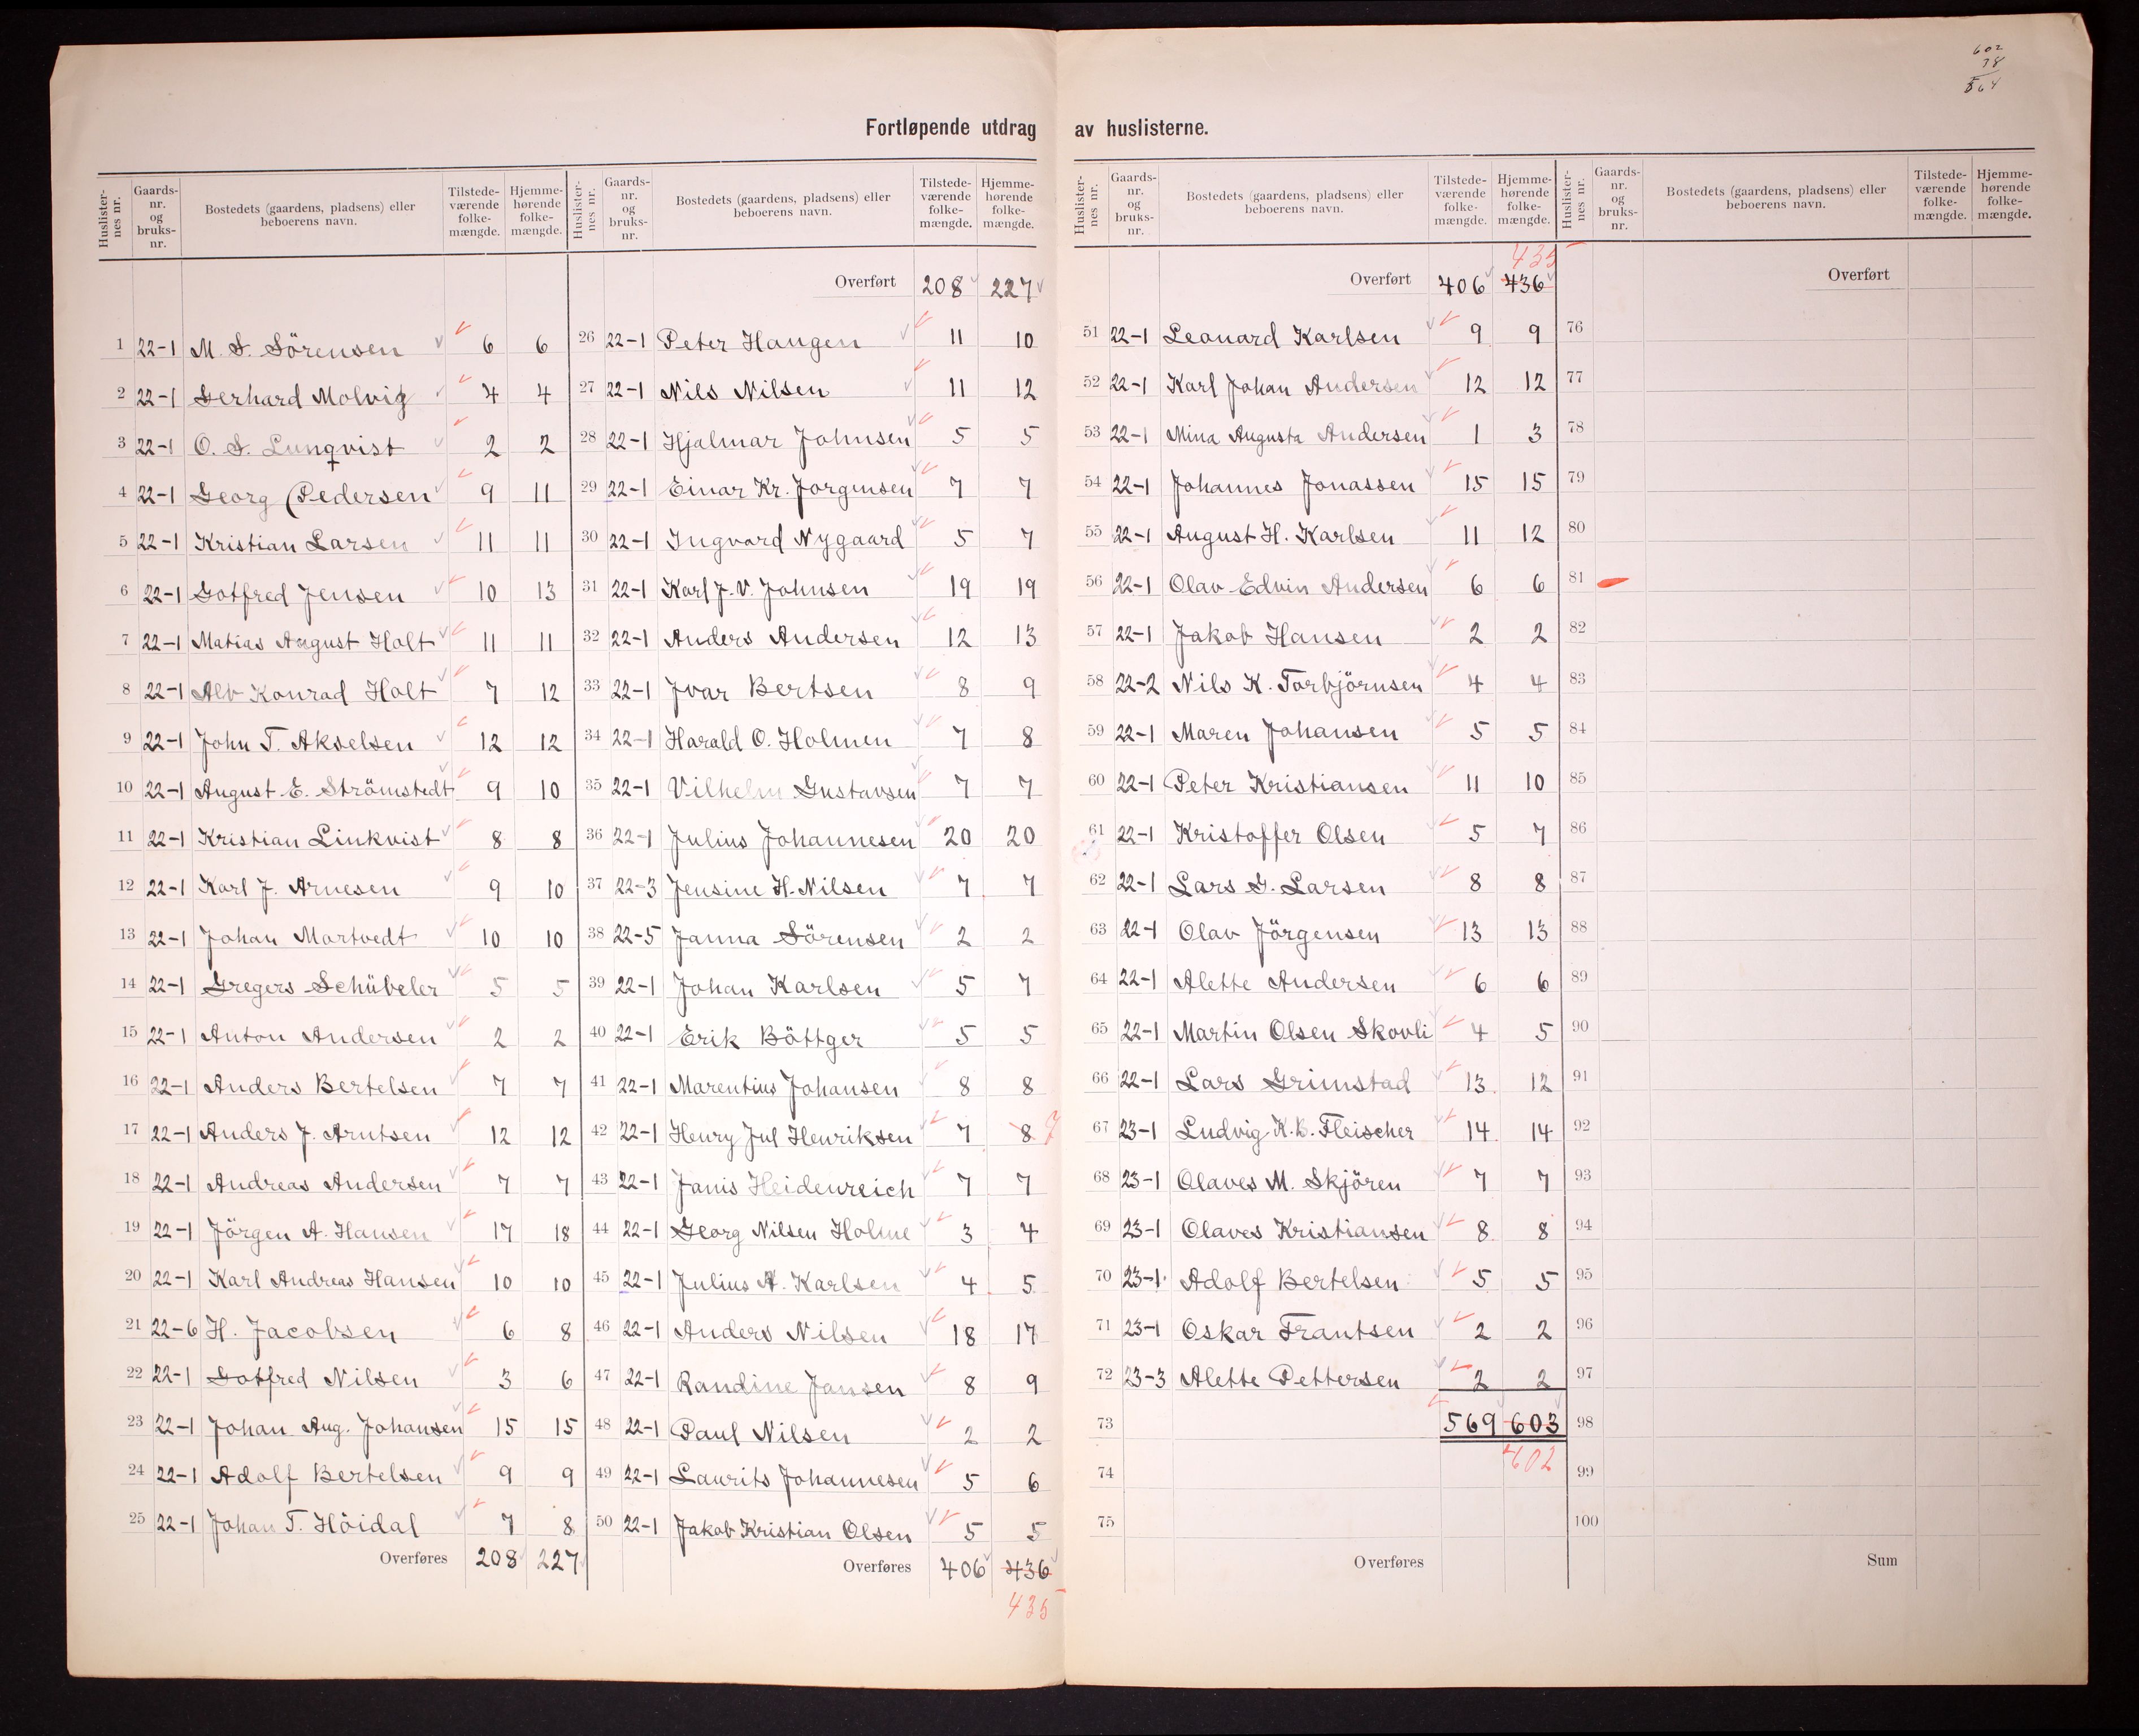 602
38
564
Fortløpende utdrag av huslisterne.
Huslister-nes nr. Gaards-nr. og bruks-nr. Bostedets (gaardens, pladsens) eller beboerens navn. Tilstede-værende folke-mængde. Hjemme-hørende folke-mængde.
1 22-1 M. S. Sörensen 6 6
2 22-1 Gerhard Molvig 4 4
3 22-1 O. S. Lunqvist 2 2
4 22-1 Georg Pedersen 9 11
5 22-1 Kristian Larsen 11 11
6 22-1 Gotfred Jensen 10 13
7 22-1 Matias August Holt 11 11
8 22-1 Alv Konrad Holt 7 12
9 22-1 John T. Akselsen 12 12
10 22-1 August E. Strömstedt 9 10
11 22-1 Kristian Linkvist 8 8
12 22-1 Karl J. Arnesen 9 10
13 22-1 Johan Mortvedt 10 10
14 22-1 Gregers Schübeler 5 5
15 22-1 Anton Andersen 2 2
16 22-1 Anders Bertelsen 7 7
17 22-1 Anders J. Arntsen 12 12
18 22-1 Andreas Andersen 7 7
19 22-1 Jörgen A. Hansen 17 18
20 22-1 Karl Andreas Hansen 10 10
21 22-6 H. Jacobsen 6 8
22 22-1 Gotfred Nilsen 3 6
23 22-1 Johan Aug. Johansen 15 15
24 22-1 Adolf Bertelsen 9 9
25 22-1 Johan T. Höidal 7 8
Overføres 208 227
Huslister-nes nr. Gaards-nr. og bruks-nr. Bostedets (gaardens, pladsens) eller beboerens navn. Tilstede-værende folke-mængde. Hjemme-hørende folke-mængde.
Overført 208 227
26 22-1 Peter Haugen 11 10
27 22-1 Nils Nilsen 11 12
28 22-1 Hjalmar Johnsen 5 5
29 22-1 Einar Kr. Jorgensen 7 7
30 22-1 Ingvard Nygaard 5 7
31 22-1 Karl J. V. Johnsen 19 19
32 22-1 Anders Andersen 12 13
33 22-1 Ivar Bertsen 8 9
34 22-1 Harald O. Holmen 7 8
35 22-1 Vilhelm Gustavsen 7 7
36 22-1 Julius Johannesen 20 20
37 22-3 Jensine H. Nilsen 7 7
38 22-5 Janna Sörensen 2 2
39 22-1 Johan Karlsen 5 7
40 22-1 Erik Böttger 5 5
41 22-1 Marentius Johansen 8 8
42 22-1 Henry Jul Henriksen 7 8 7
43 22-1 Janis Heidenreich 7 7
44 22-1 Georg Nilsen Holme 3 4
45 22-1 Julius A. Karlsen 4 5
46 22-1 Anders Nilsen 18 17
47 22-1 Randine Jansen 8 9
48 22-1 Paul Nilsen 2 2
49 22-1 Laurits Johannesen 5 6
50 22-1 Jakob Kristian Olsen 5 5
Overføres 406 436
435
Huslister-nes nr. Gaards-nr. og bruks-nr. Bostedets (gaardens, pladsens) eller beboerens navn. Tilstede-værende folke-mængde. Hjemme-hørende folke-mængde.
435
Overført 406 436
51 22-1 Leonard Karlsen 9 9
52 22-1 Karl Johan Andersen 12 12
53 22-1 Mina Augusta Andersen 1 3
54 22-1 Johannes Jonassen 15 15
55 22-1 August H. Karlsen 11 12
56 22-1 Olav Edvin Andersen 6 6
57 22-1 Jakob Hansen 2 2
58 22-2 Nils K. Torbjörnsen 4 4
59 22-1 Maren Johansen 5 5
60 22-1 Peter Kristiansen 11 10
61 22-1 Kristoffer Olsen 5 7
62 22-1 Lars G. Larsen 8 8
63 22-1 Olav Jörgensen 13 13
64 22-1 Alette Andersen 6 6
65 22-1 Martin Olsen Skovli 4 5
66 22-1 Lars Grimstad 13 12
67 23-1 Ludvig K. B. Fleischer 14 14
68 23-1 Olaves M. Skjören 7 7
69 23-1 Olaves Kristiansen 8 8
70 23-1 Adolf Bertelsen 5 5
71 23-1 Oskar Frantsen 2 2
72 23-3 Alette Pettersen 2 2
73 569 603
602
74
75
Overføres
Huslister-nes nr. Gaards-nr. og bruks-nr. Bostedets (gaardens, pladsens) eller beboerens navn. Tilstede-værende folke-mængde. Hjemme-hørende folke-mængde.
Overført
76
77
78
79
80
81
82
83
84
85
86
87
88
89
90
91
92
93
94
95
96
97
98
99
100
Sum